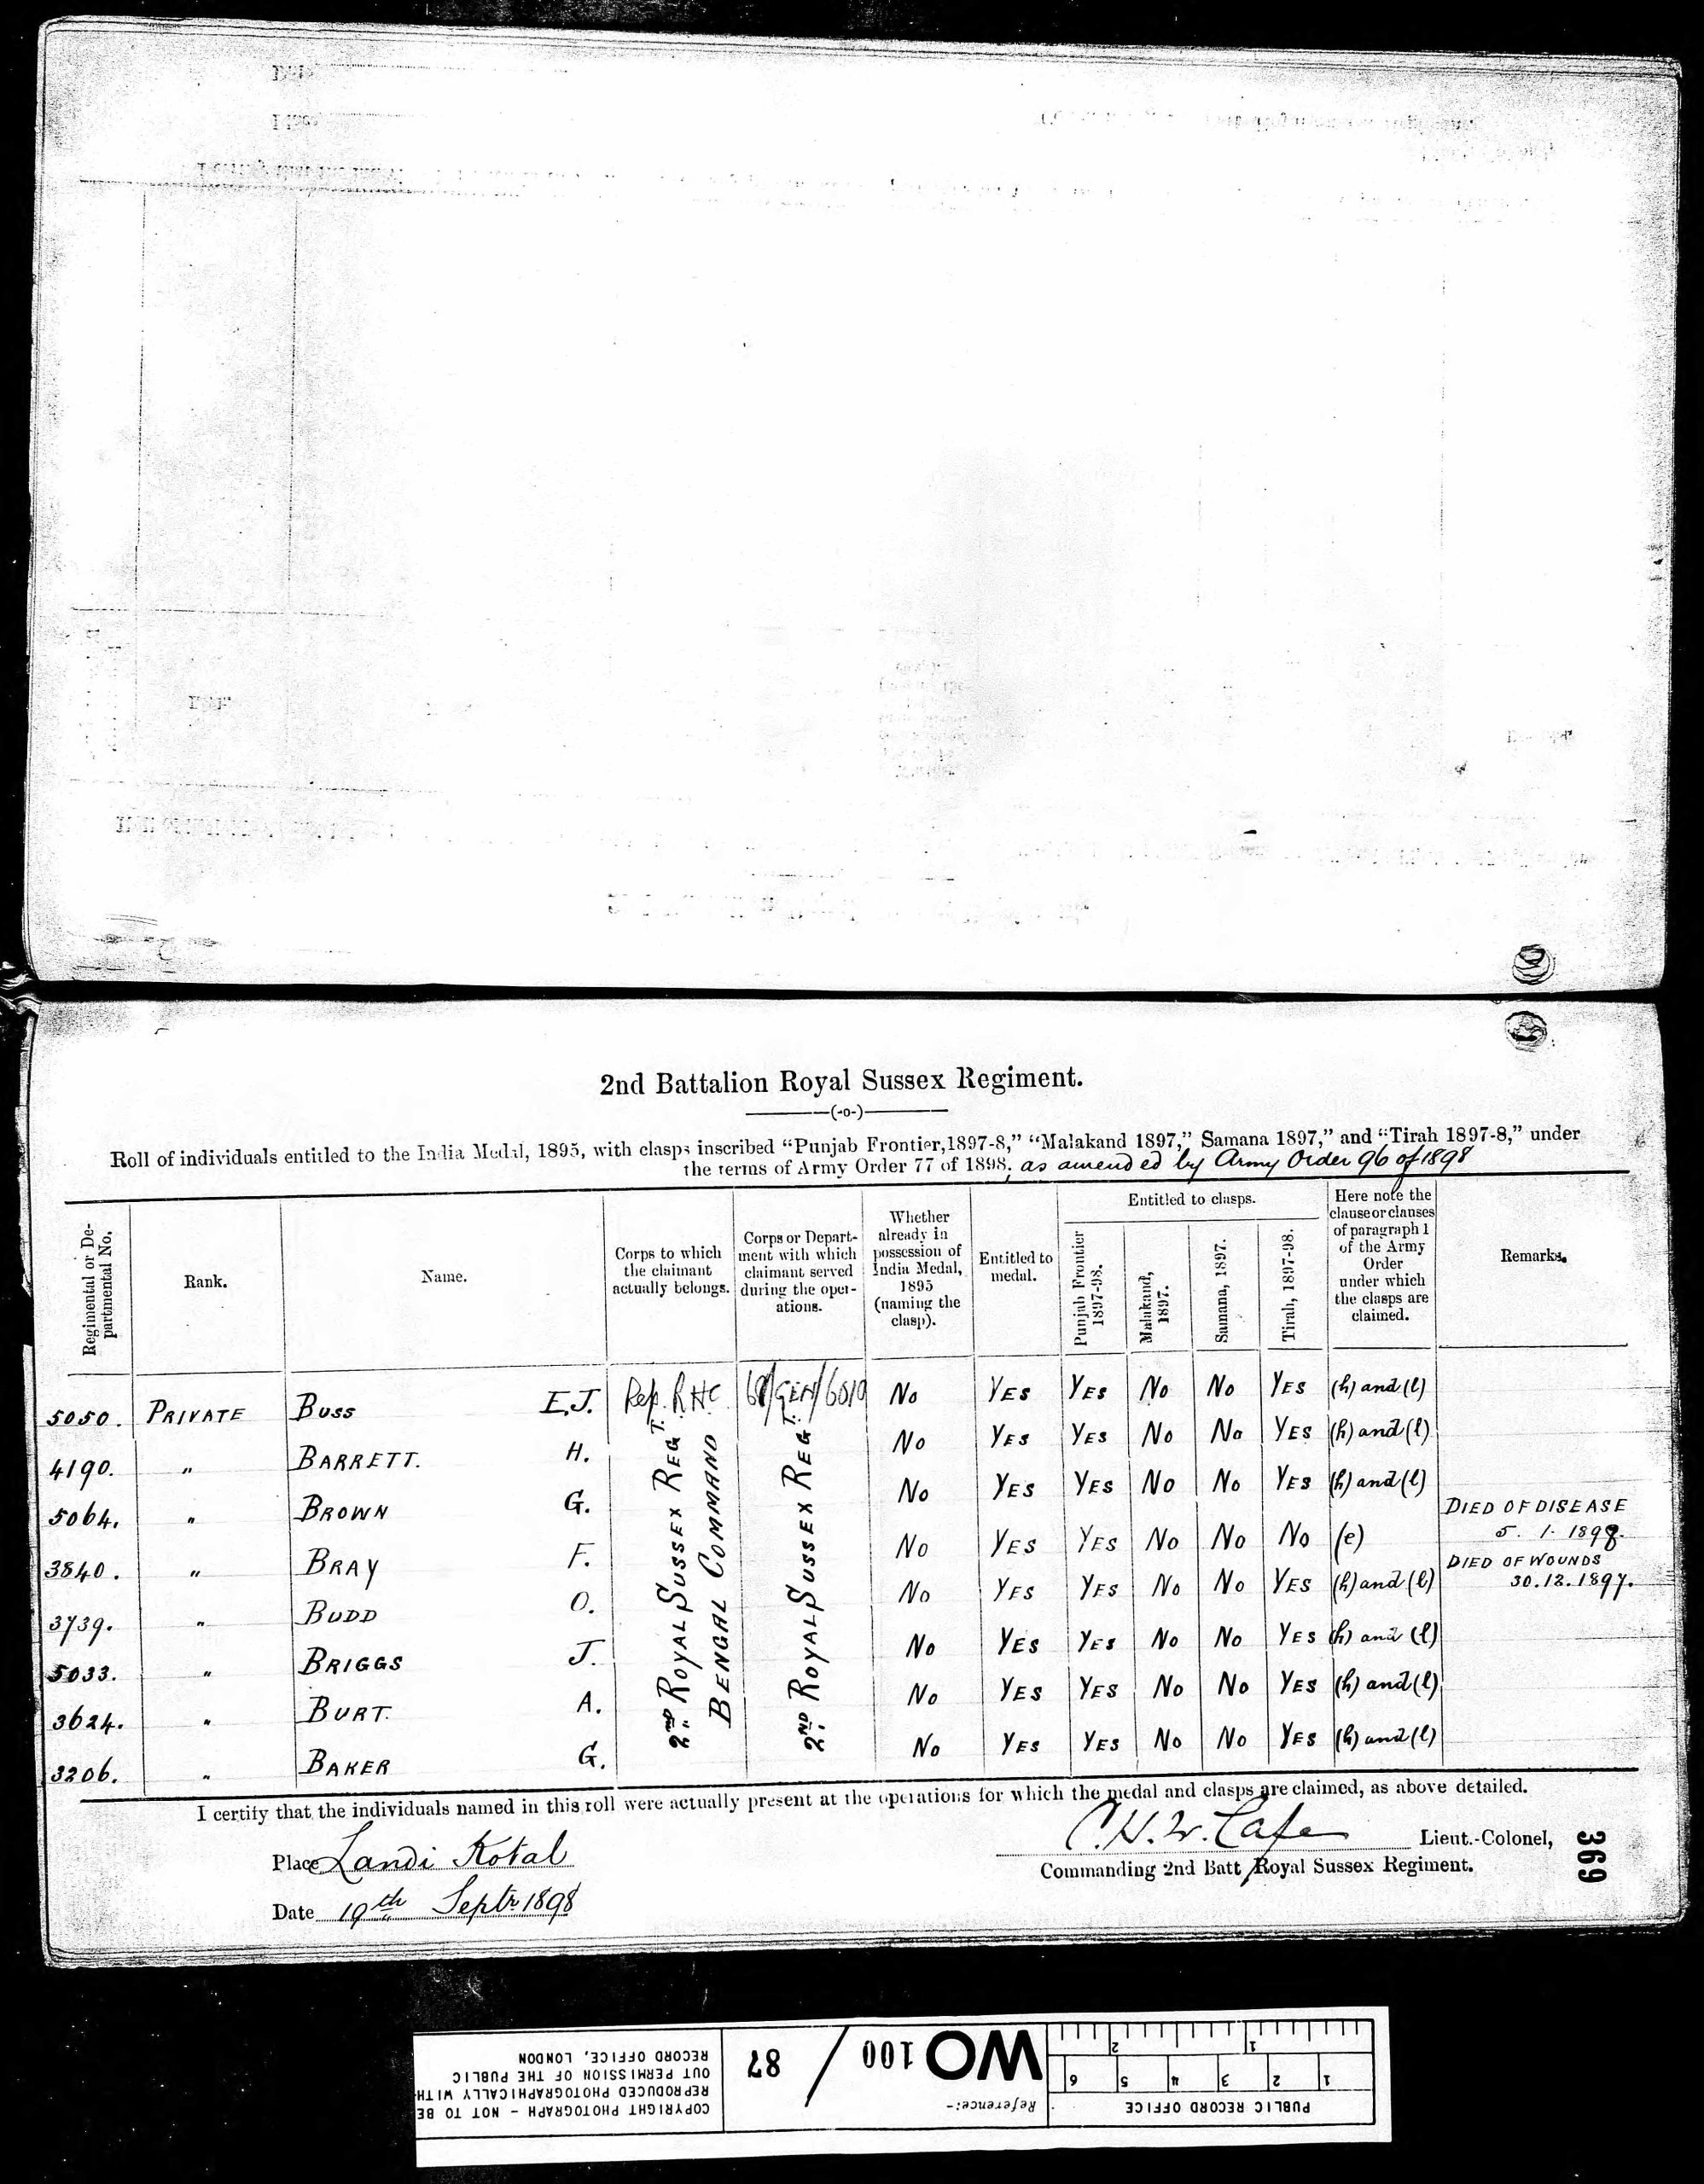 2nd Battalion Royal Sussex Regiment.
(-o-)
Roll of individuals entitled to the India Medal, 1895, with clasps inscribed “Punjab Frontier, 1897-8,” “Malakand 1897,” Samana 1897,” and “Tirah 1897-8,” under
the terms of Army Order 77 of 1898, as amended by Army Order 96 of 1898
Regimental or Departmental No. Rank. Name. Corps to which the claimant actually belongs. Corps or Department with which claimant served during the operations. Whether already in possession of India Medal, 1895 (naming the clasp). Entitled to medal. Entitled to clasps. Punjab Frontier 1897-98. Malakand, 1897. Samana, 1897. Tirah, 1897-98. Here note the clause or clauses of paragraph 1 of the Army Order under which the clasps are claimed. Remarks.
5050. PRIVATE BUSS E.J. Rep. RHC 68/GEN/6010 No YES YES No No YES (h) and (l)
4190. " BARRETT. H. No YES YES No No YES (h) and (l)
5064. " BROWN G. No YES YES No No YES (h) and (l)
3840. " BRAY F. No YES YES No No No (e) DIED OF DISEASE 5.1.1898.
3739. " BUDD O. No YES YES No No YES (h) and (l) DIED OF WOUNDS 30.12.1897.
5033. " BRIGGS J. No YES YES No No YES (h) and (l)
3624. " BURT. A. No YES YES No No YES (h) and (l)
3206. " BAKER G. No YES YES No No YES (h) and (l)
2ND ROYAL SUSSEX REGT.
BENGAL COMMAND
2ND ROYAL SUSSEX REGT.
I certify that the individuals named in this roll were actually present at the operations for which the medal and clasps are claimed, as above detailed.
Place Landi Kotal
Date 19th Septr 1898
C.H.W. Cafe Lieut.-Colonel,
Commanding 2nd Batt Royal Sussex Regiment.
369
PUBLIC RECORD OFFICE
1 2 3 4 5 6
1 2
Reference:-
WO 100 / 87
COPYRIGHT PHOTOGRAPH - NOT TO BE
REPRODUCED PHOTOGRAPHICALLY WITH-
OUT PERMISSION OF THE PUBLIC
RECORD OFFICE, LONDON